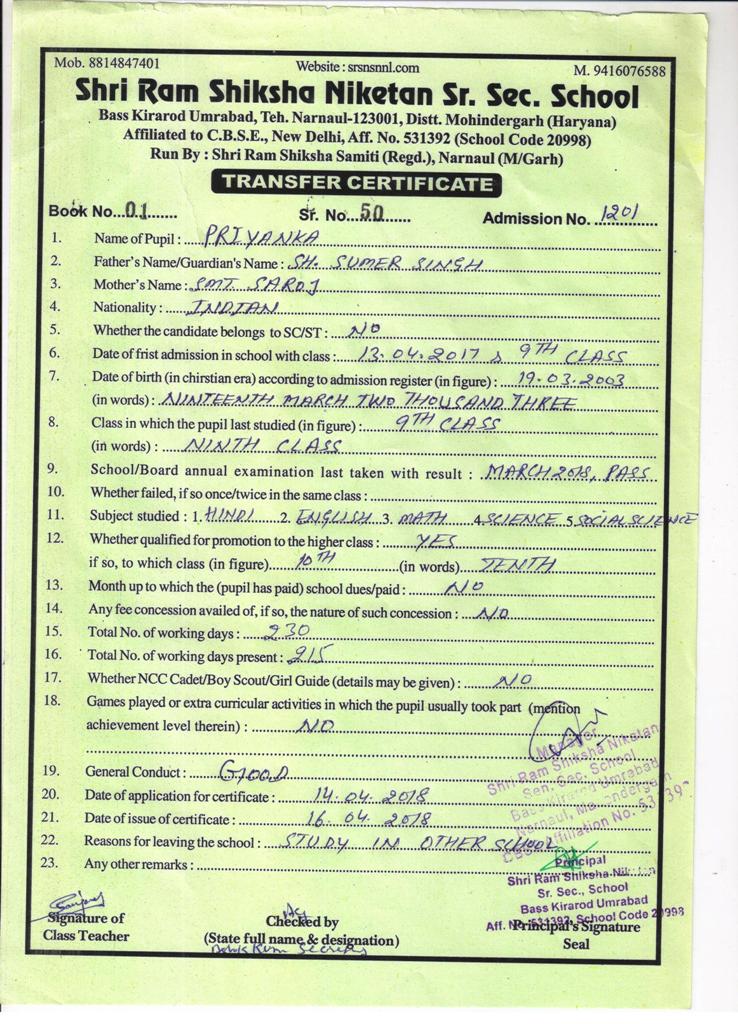 Mob. 8814847401 Website : srsnsnnl.com M. 9416076588
Shri Ram Shiksha Niketan Sr. Sec. School
Bass Kirarod Umrabad, Teh. Narnaul-123001, Distt. Mohindergarh (Haryana)
Affiliated to C.B.S.E., New Delhi, Aff. No. 531392 (School Code 20998)
Run By : Shri Ram Shiksha Samiti (Regd.), Narnaul (M/Garh)
TRANSFER CERTIFICATE
Book No...01....... Sr. No...50....... Admission No. 1201
1. Name of Pupil : PRIYANKA
2. Father's Name/Guardian's Name : SH. SUMER SINGH
3. Mother's Name : SMT SAROJ
4. Nationality : INDIAN
5. Whether the candidate belongs to SC/ST : NO
6. Date of frist admission in school with class : 13.04.2017 & 9TH CLASS
7. Date of birth (in chirstian era) according to admission register (in figure) : 19.03.2003
(in words) : NINTEENTH MARCH TWO THOUSAND THREE
8. Class in which the pupil last studied (in figure) : 9TH CLASS
(in words) : NINTH CLASS
9. School/Board annual examination last taken with result : MARCH 2018, PASS
10. Whether failed, if so once/twice in the same class :
11. Subject studied : 1. HINDI 2. ENGLISH 3. MATH 4. SCIENCE 5. SOCIAL SCIENCE
12. Whether qualified for promotion to the higher class : YES
if so, to which class (in figure) 10TH (in words) TENTH
13. Month up to which the (pupil has paid) school dues/paid : NO
14. Any fee concession availed of, if so, the nature of such concession : NO
15. Total No. of working days : 230
16. Total No. of working days present : 215
17. Whether NCC Cadet/Boy Scout/Girl Guide (details may be given) : NO
18. Games played or extra curricular activities in which the pupil usually took part (mention
achievement level therein) : NO
Manager
Shri Ram Shiksha Niketan
Sen. Sec. School
Bass Kirarod Umrabad
Narnaul, Mahendergarh
Affiliation No.
19. General Conduct : GOOD
20. Date of application for certificate : 14.04.2018
21. Date of issue of certificate : 16.04.2018
22. Reasons for leaving the school : STUDY IN OTHER SCHOOL
23. Any other remarks :
Principal
Shri Ram Shiksha
Sr. Sec., School
Bass Kirarod Umrabad
Aff. No. 531392, School Code 20998
Signature of Checked by Principal's Signature
Class Teacher (State full name & designation) Seal